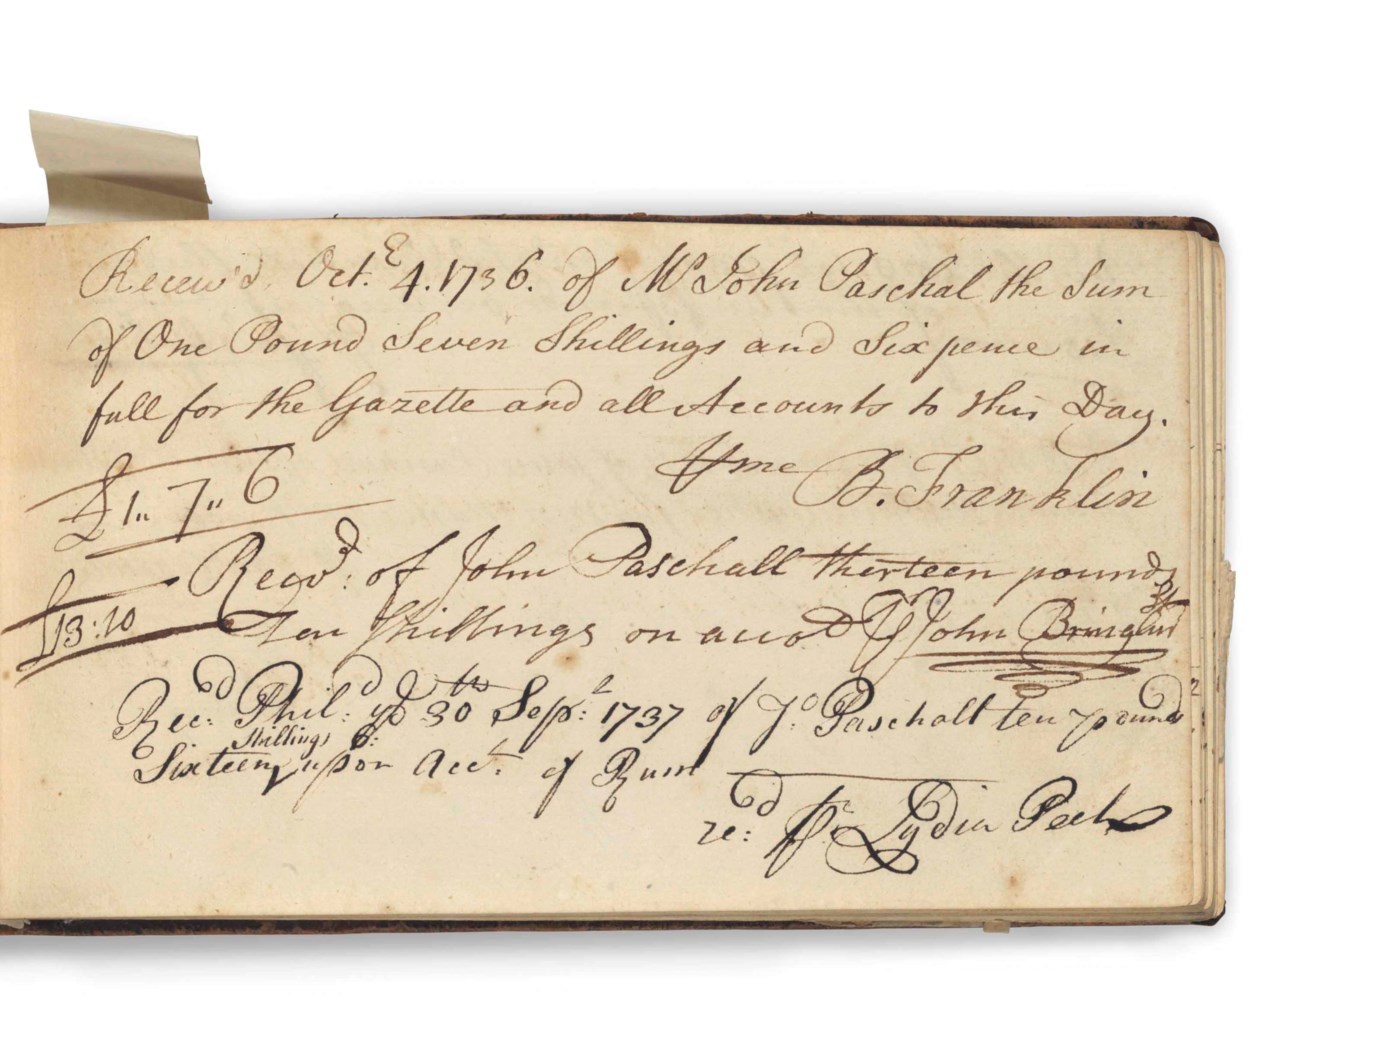 Receiv'd Oct.r 4. 1736. of Mr John Paschal the Sum
of One Pound Seven Shillings and Sixpence in
full for the Gazette and all Accounts to this Day.
£1„ 7„ 6 ⅌ me B. Franklin
Recvd: of John Paschall thirteen pounds
£13:10 Ten Shillings on accot ⅌ John
Recd: Phild: ye 30th Sepr: 1737 of Jo: Paschall ten pounds
Sixteen Shillings 6: upon Acct. of Rum
recd: ⅌r Lydia